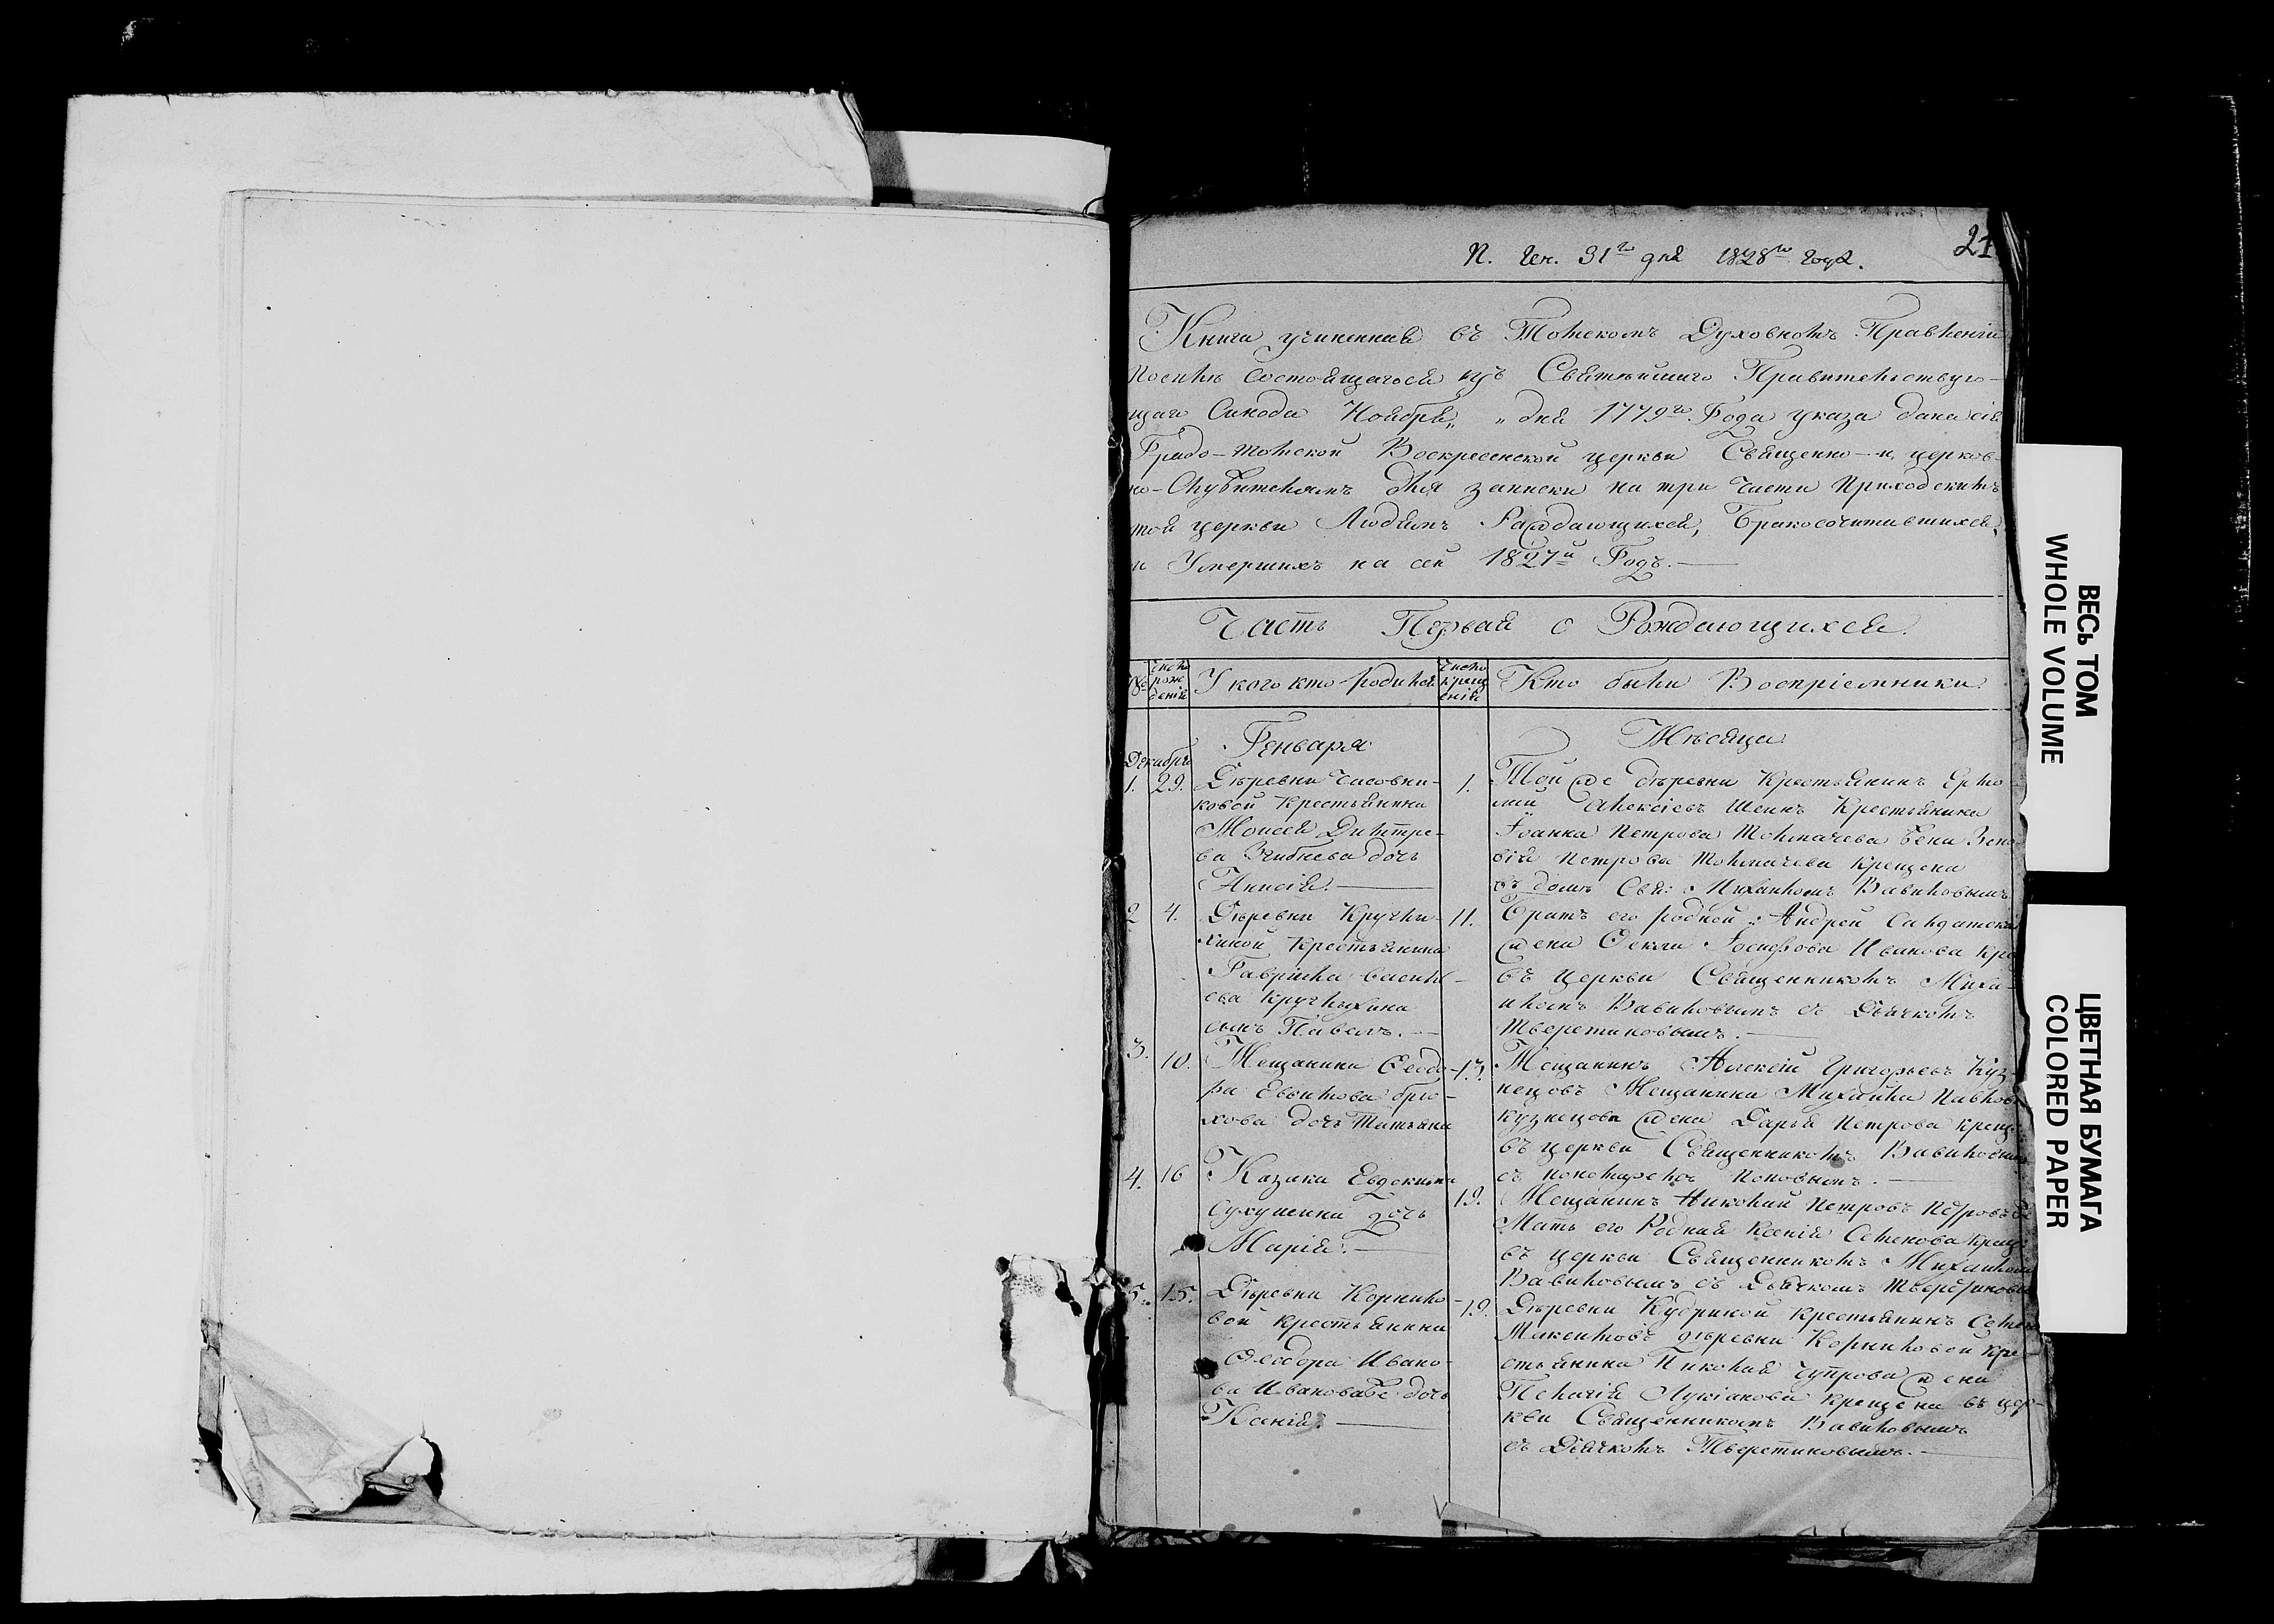 21
П. Ген. 31го дня 1828го года.
Книга учиненная въ Томскомъ Духовномъ Правленіи
после состоящагося изъ Святейшаго Правительствую-
щаго Синода Ноября „ „ дня 1779го Года указа дана сія
Градо-Томской Воскресенской церкви Священно-и церков-
но-Служителямъ для записки на три части приходскихъ
той церкви Людямъ Раждающихся, Бракосочитавшихся,
и Умершихъ на сей 1827й Годъ.
Часть Первая о Рождающихся.
№
число рож денія
У кого кто родился
число крещ енія
Кто были Воспріемники
Генваря
Мѣсяца
Декабря
1. 29. Дѣревни Часовни-
ковой крестьянина
Моисея Дмитре-
ва дочь
Анисія.
1. Той же дѣревни Крестьянинъ Ермо-
лай Алексіевъ Шеинъ Крестьянина
Іоанна Петрова Толмачева
Петрова Толмачева крещена
въ домѣ Свя: Михаиломъ Вавиловымъ
2 4. Дѣревни Кругли-
хиной крестьянина
Гавріила Василь-
ева Круглыхина
сынъ Павелъ.
11. Братъ его родной Андрей Салдатска
жена Фекла Іосифова Иванова кре
въ церкви Священникомъ Миха-
иломъ Вавиловымъ съ Дьячкомъ
Тверетиновымъ.
3. 10. Мещанина Феодо-
ра Евсикова брю-
хова дочь Татьяна
13. Мещанинъ Алексій Григорьевъ Куз-
нецовъ Мещанина Михаила Павлов
кузнецова жена Дарья Петрова крещ.
въ церкви Священникомъ Вавиловым
съ пономаремъ Поповымъ.
4. 16 Казака Евдокима
Сухушина дочь
Марія.
19. Мещанинъ Николай Петровъ Петровъ
Мать его Родная Ксенія Семенова крещ:
въ церкви Священникомъ Михаилом
Вавиловымъ съ Дьячкомъ Тверетиновы
5. 15. Дѣревни Корнило-
вой крестьянина
Феодора Ивано-
ва дочь
Ксенія.
19. Дѣревни Кудриной крестьянинъ Семен
Максимовъ дѣревни Корниловой кре-
стьянина Николая Чупрова жена
Пелагія Лукіанова крещена въ цер-
кви Священникомъ Вавиловымъ
съ Дьячкомъ Тверетиновымъ.
ВЕСЬ ТОМ
WHOLE VOLUME
ЦВЕТНАЯ БУМАГА
COLORED PAPER